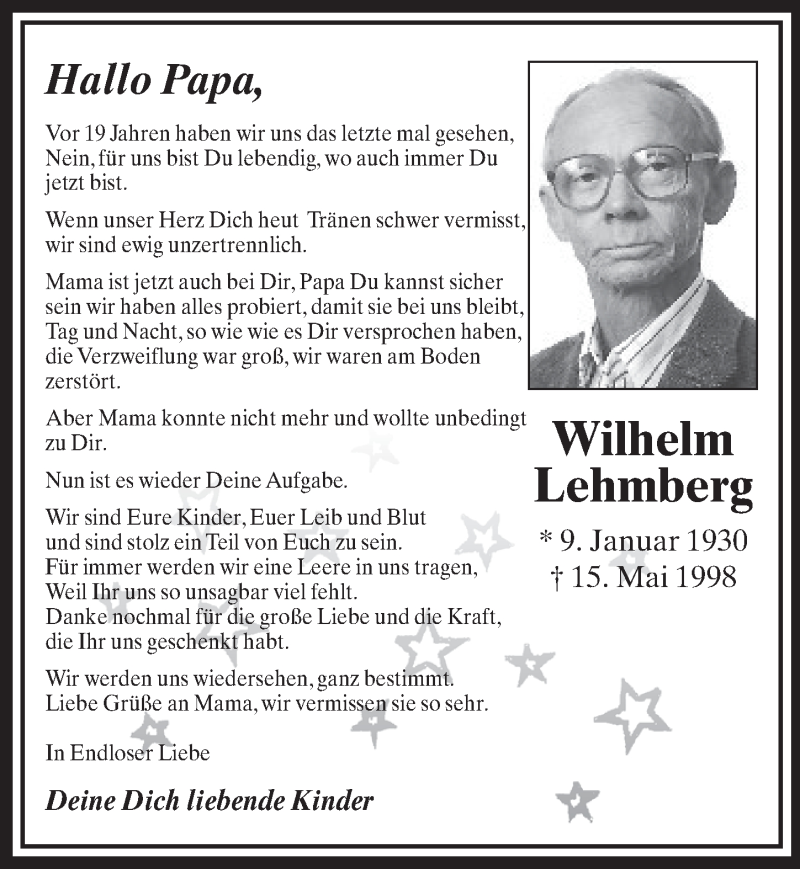 Hallo Papa,
Vor 19 Jahren haben wir uns das letzte mal gesehen,
Nein, für uns bist Du lebendig, wo auch immer Du
jetzt bist.
Wenn unser Herz Dich heut Tränen schwer vermisst,
wir sind ewig unzertrennlich.
Mama ist jetzt auch bei Dir, Papa Du kannst sicher
sein wir haben alles probiert, damit sie bei uns bleibt,
Tag und Nacht, so wie wie es Dir versprochen haben,
die Verzweiflung war groß, wir waren am Boden
zerstört.
Aber Mama konnte nicht mehr und wollte unbedingt
zu Dir.
Nun ist es wieder Deine Aufgabe.
Wir sind Eure Kinder, Euer Leib und Blut
und sind stolz ein Teil von Euch zu sein.
Für immer werden wir eine Leere in uns tragen,
Weil Ihr uns so unsagbar viel fehlt.
Danke nochmal für die große Liebe und die Kraft,
die Ihr uns geschenkt habt.
Wir werden uns wiedersehen, ganz bestimmt.
Liebe Grüße an Mama, wir vermissen sie so sehr.
In Endloser Liebe
Deine Dich liebende Kinder
Wilhelm
Lehmberg
* 9. Januar 1930
† 15. Mai 1998